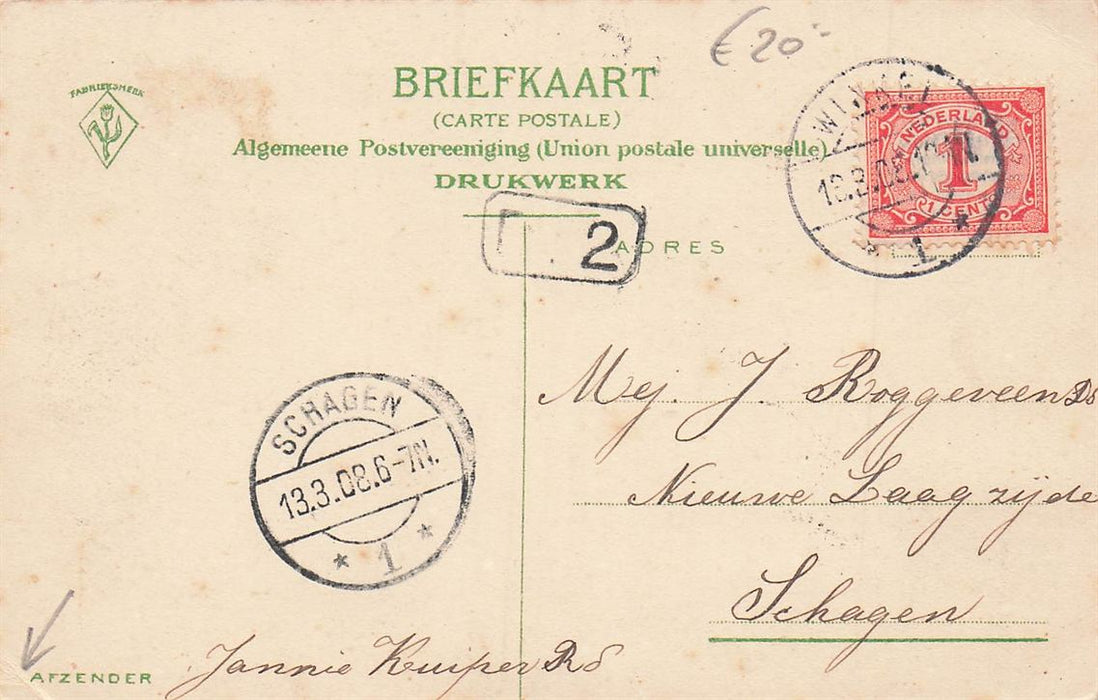 € 20.-
FABRIEKSMERK
BRIEFKAART
(CARTE POSTALE)
Algemeene Postvereeniging (Union postale universelle)
DRUKWERK
NEDERLAND
1
1 CENT
1
2
ADRES
SCHAGEN
13.3.08.6-7N.
* 1 *
Mej. J. Roggeveen Ds
Nieuwe Laagzijde
Schagen
AFZENDER
Jannie Kuiper Rd